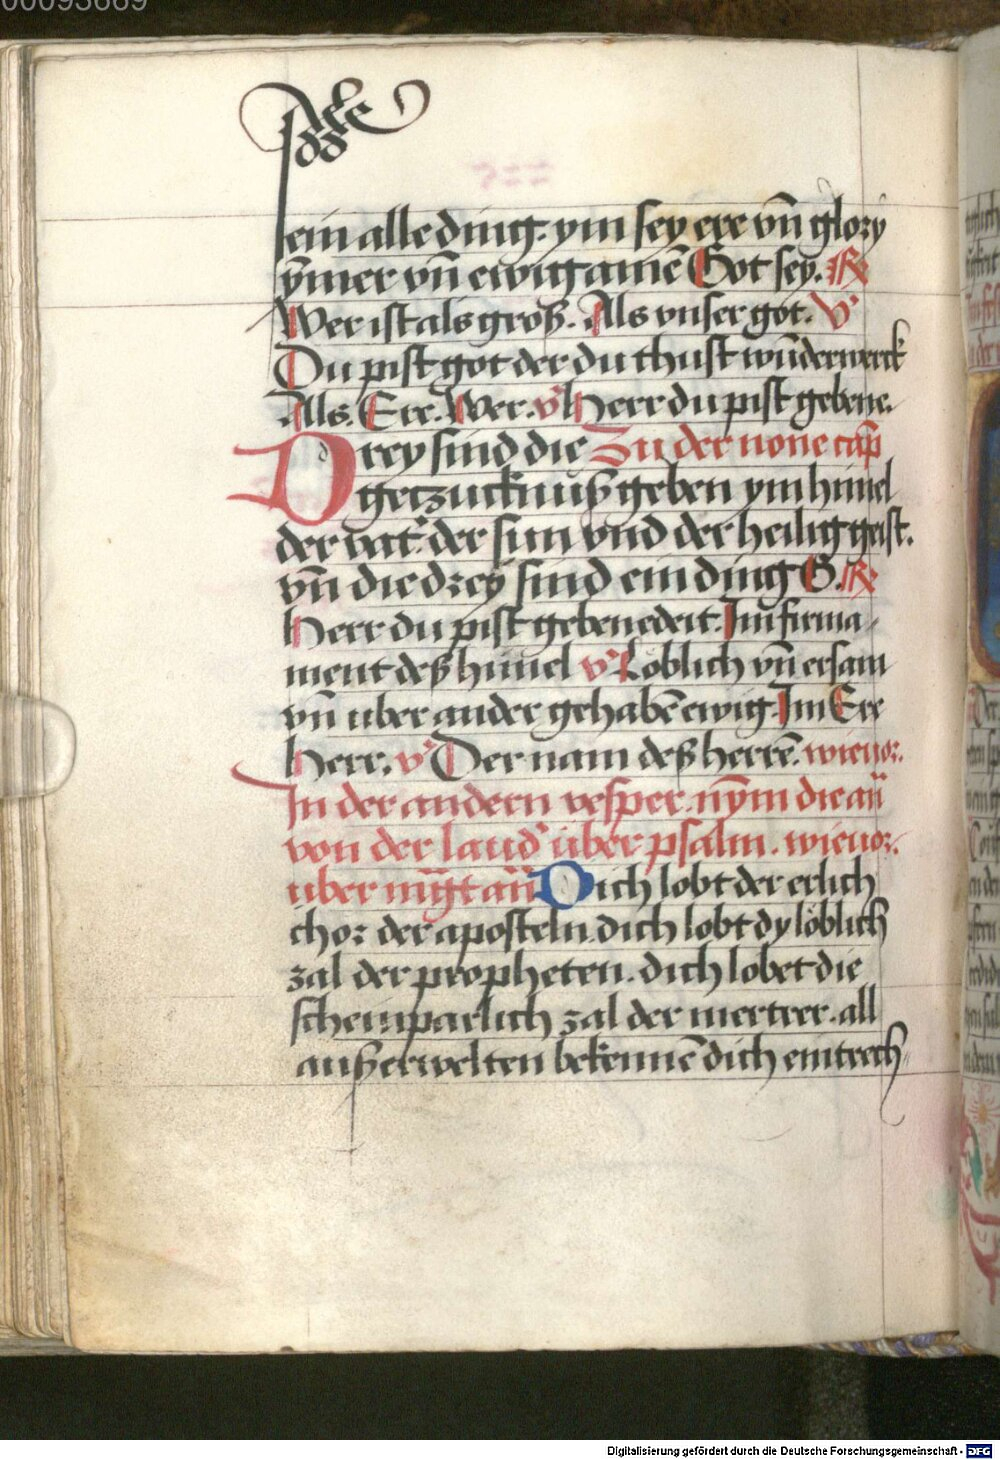 00093669
sein alle ding. ym sey ere vn̄ glory
ȳmer vn̄ ewig amē Got sey. R
Wer ist als groß. Als vnser got. v
Du pist got der du thust wūnderwerck
Als. Ere. Wer. v Herr du pist gebene.
Drey sind die Zu der none cap
getzucknuß geben ym himel
der vat. der sun vnd der heilig geist.
vn̄ die drey sind ein ding G. R
Herr du pist gebenedeit. Im firma-
ment deß himel v Löblich vn̄ ersam
vn̄ uber ander gehabē ewig. Im Ere
Herr. v Der nam deß herrē. wieuor.
In der andern vesper. nȳm die an̄
von der laud uber psalm. wieuor.
uber mḡt an̄ Dich lobt der erlich
chor der aposteln. dich lobt dy löblich
zal der propheten. dich lobet die
scheinparlich zal der mertrer. all
außerwelten bekennē dich eintrech-
Digitalisierung gefördert durch die Deutsche Forschungsgemeinschaft - DFG